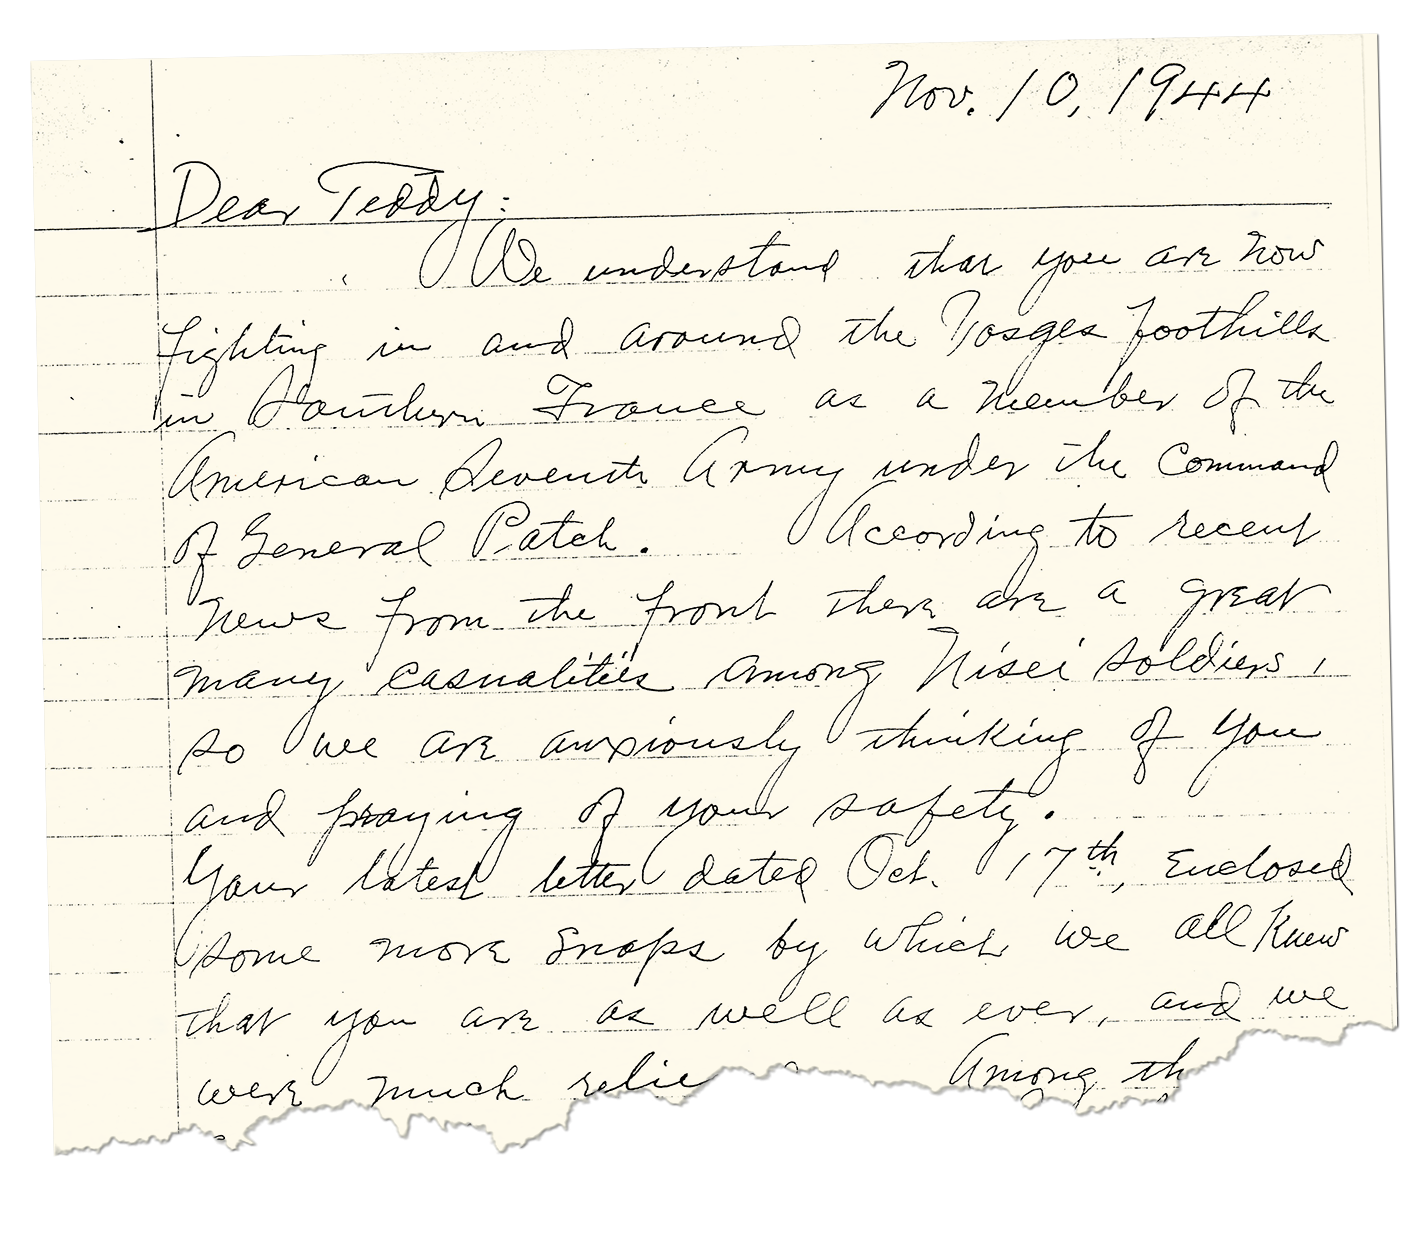 Nov. 10, 1944
Dear Teddy:
We understand that you are now
fighting in and around the Vosges foothills
in Southern France as a member of the
American Seventh Army under the command
of General Patch. According to recent
news from the front there are a great
many casualities among Nisei soldiers,
so we are anxiously thinking of you
and praying of your safety.
Your latest letter dated Oct. 17th, Enclosed
some more snaps by which we all knew
that you are as well as ever, and we
were much relie Among th